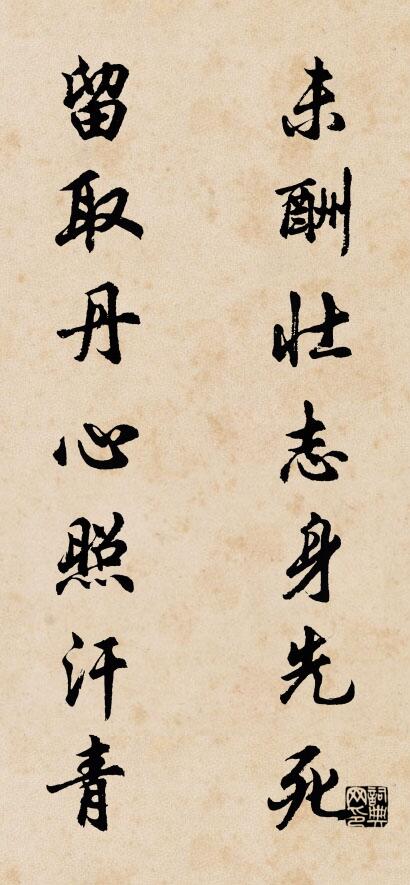 未酬壮志身先死
留取丹心照汗青
詞典网